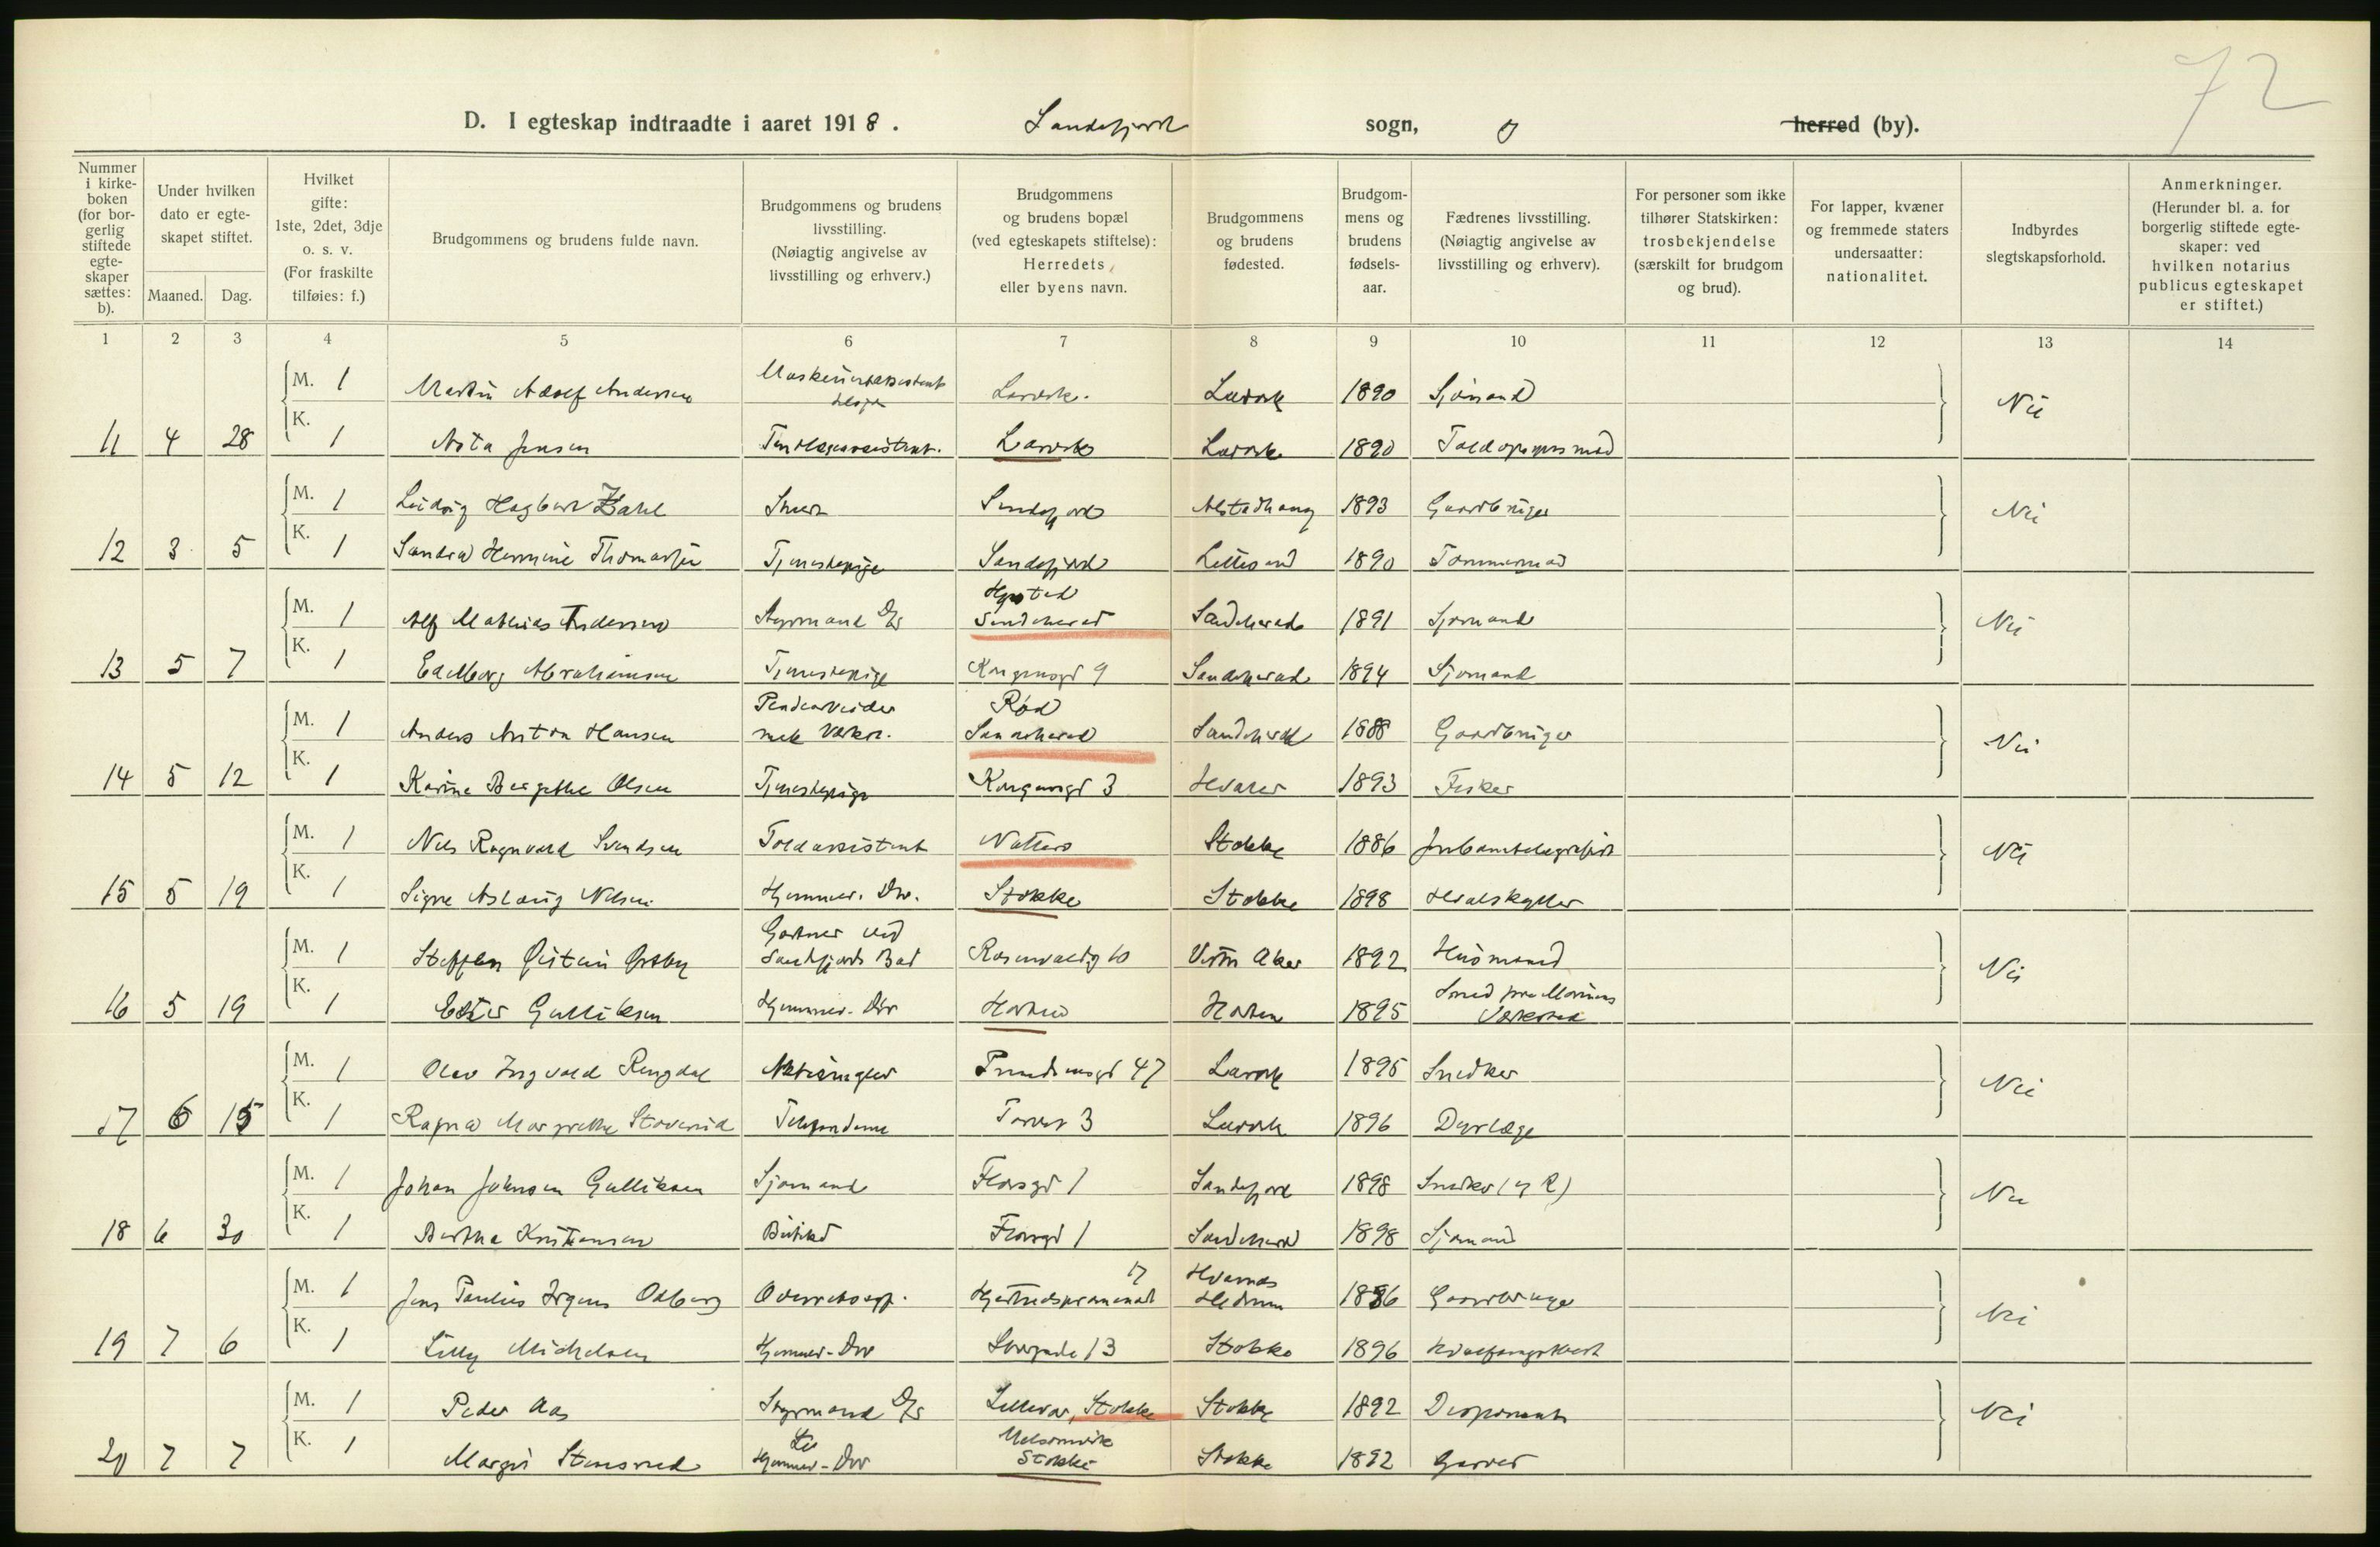 72
D. I egteskap indtraadte i aaret 1918. Sandefjord sogn, herred (by).
Nummer i kirkeboken (for borgerlig stiftede egteskaper sættes: b).
Under hvilken dato er egteskapet stiftet.
Maaned. Dag.
Hvilket gifte: 1ste, 2det, 3dje o. s. v. (For fraskilte tilføies: f.)
Brudgommens og brudens fulde navn.
Brudgommens og brudens livsstilling. (Nøiagtig angivelse av livsstilling og erhverv.)
Brudgommens og brudens bopæl (ved egteskapets stiftelse): Herredets eller byens navn.
Brudgommens og brudens fødested.
Brudgommens og brudens fødselsaar.
Fædrenes livsstilling. (Nøiagtig angivelse av livsstilling og erhverv).
For personer som ikke tilhører Statskirken: trosbekjendelse (særskilt for brudgom og brud).
For lapper, kvæner og fremmede staters undersaatter: nationalitet.
Indbyrdes slegtskapsforhold.
Anmerkninger. (Herunder bl. a. for borgerlig stiftede egteskaper: ved hvilken notarius publicus egteskapet er stiftet.)
1 2 3 4 5 6 7 8 9 10 11 12 13 14
M. 1 Martin Adolf Andersen Larvik. Larvik 1890 Sjømand Nei
11 4 28 K. 1 Asta Jensen Larvik Larvik 1890 Toldopsynsmd
M. 1 Ludvig Hagbart Dahl Smed Sandefjord Alstadhaug 1893 Gaardbruger Nei
12 3 5 K. 1 Sandra Hermine Thomassen Tjenestepige Sandefjord Lillesand 1890 Tømmermand
M. 1 Alf Mathias Andersen Styrmand D/S Sandeherad Sandeherad 1891 Sjømand Nei
13 5 7 K. 1 Edelborg Abrahamsen Tjenestepige Kongensgd 9 Sandeherad 1894 Sjømand
Rød
M. 1 Anders Anton Hansen mek Verkst. Sandeherad Sandeherad 1888 Gaardbruger Nei
14 5 12 K. 1 Karine Bergethe Olsen Tjenestepige Kongensgd 3 Hvaler 1893 Fisker
M. 1 Nils Ragnvald Svendsen Toldassistent Nøtterø Stokke 1886 Nei
15 5 19 K. 1 Signe Aslaug Nilsen Hjemmev. Dtr. Stokke Stokke 1898 Hvalskytter
Gartner ved
M. 1 Steffen Øistein Østby Sandefjords Bad Rosenvoldsg 10 Vestre Aker 1892 Husmand Nei
Smed paa Marinens
16 5 19 K. 1 Ester Gulliksen Hjemmev. Dtr Horten Horten 1895 Verksted
M. 1 Olav Ingvald Ringdal Prinsensgd 47 Larvik 1895 Snedker Nei
17 6 15 K. 1 Ragna Margrethe Staverud Telefondame Torvet 3 Larvik 1896 Dyrlæge
M. 1 Johan Johnsen Gulliksen Sjømand 1 Sandefjord 1898 Snedker Nei
18 6 30 K. 1 Berthe Kristiansen Butikd 1 Sandeherad 1898 Sjømand
17 Hvarnes
M. 1 Jens Paulius Odberg Overretssagf. Hjertnespromenad Hedrum 1886 Gaardbruger Nei
19 7 6 K. 1 Lilly Michelsen Hjemmev. Dtr Storgade 13 Stokke 1896 Hvalfangstbest
M. 1 Peder Aas Styrmand D/S Lillevar, Stokke Stokke 1892 Disponent Nei
Melsomvik
20 7 7 K. 1 Margit Stensrud Hjemmev. Dtr Stokke Stokke 1892 Garver